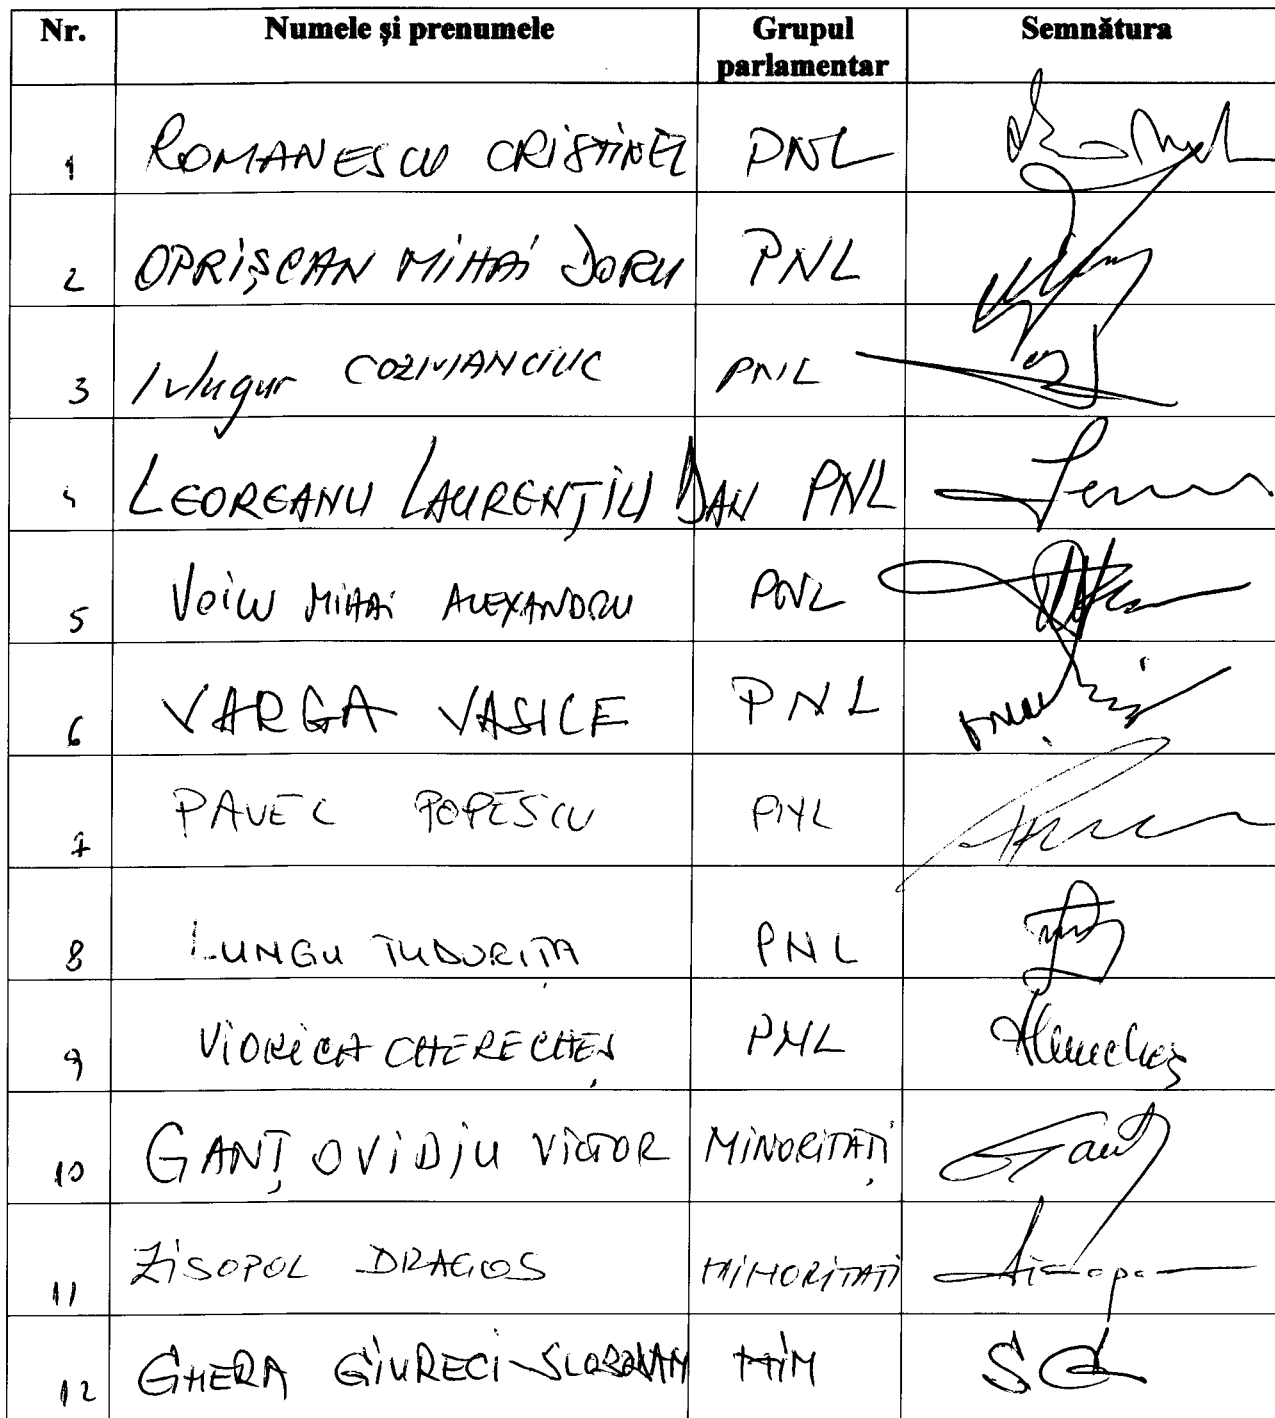 Nr. Numele și prenumele Grupul parlamentar Semnătura
1 ROMANESCU CRISTINEL PNL
2 OPRIȘCAN MIHAI DORU PNL
3 Mugur COZMANCIUC PNL
4 LEOREANU LAURENȚIU DAN PNL
5 VOICU MIHAI ALEXANDRU PNL
6 VARGA VASILE PNL
7 PAVEL POPESCU PNL
8 LUNGU TUDORIȚA PNL
9 VIORICA CHERECHEȘ PNL
10 GANȚ OVIDIU VICTOR MINORITĂȚI Gant
11 ZISOPOL DRAGOS MINORITATI
12 GHERA GIURECI-SLOBODAN MIN SG